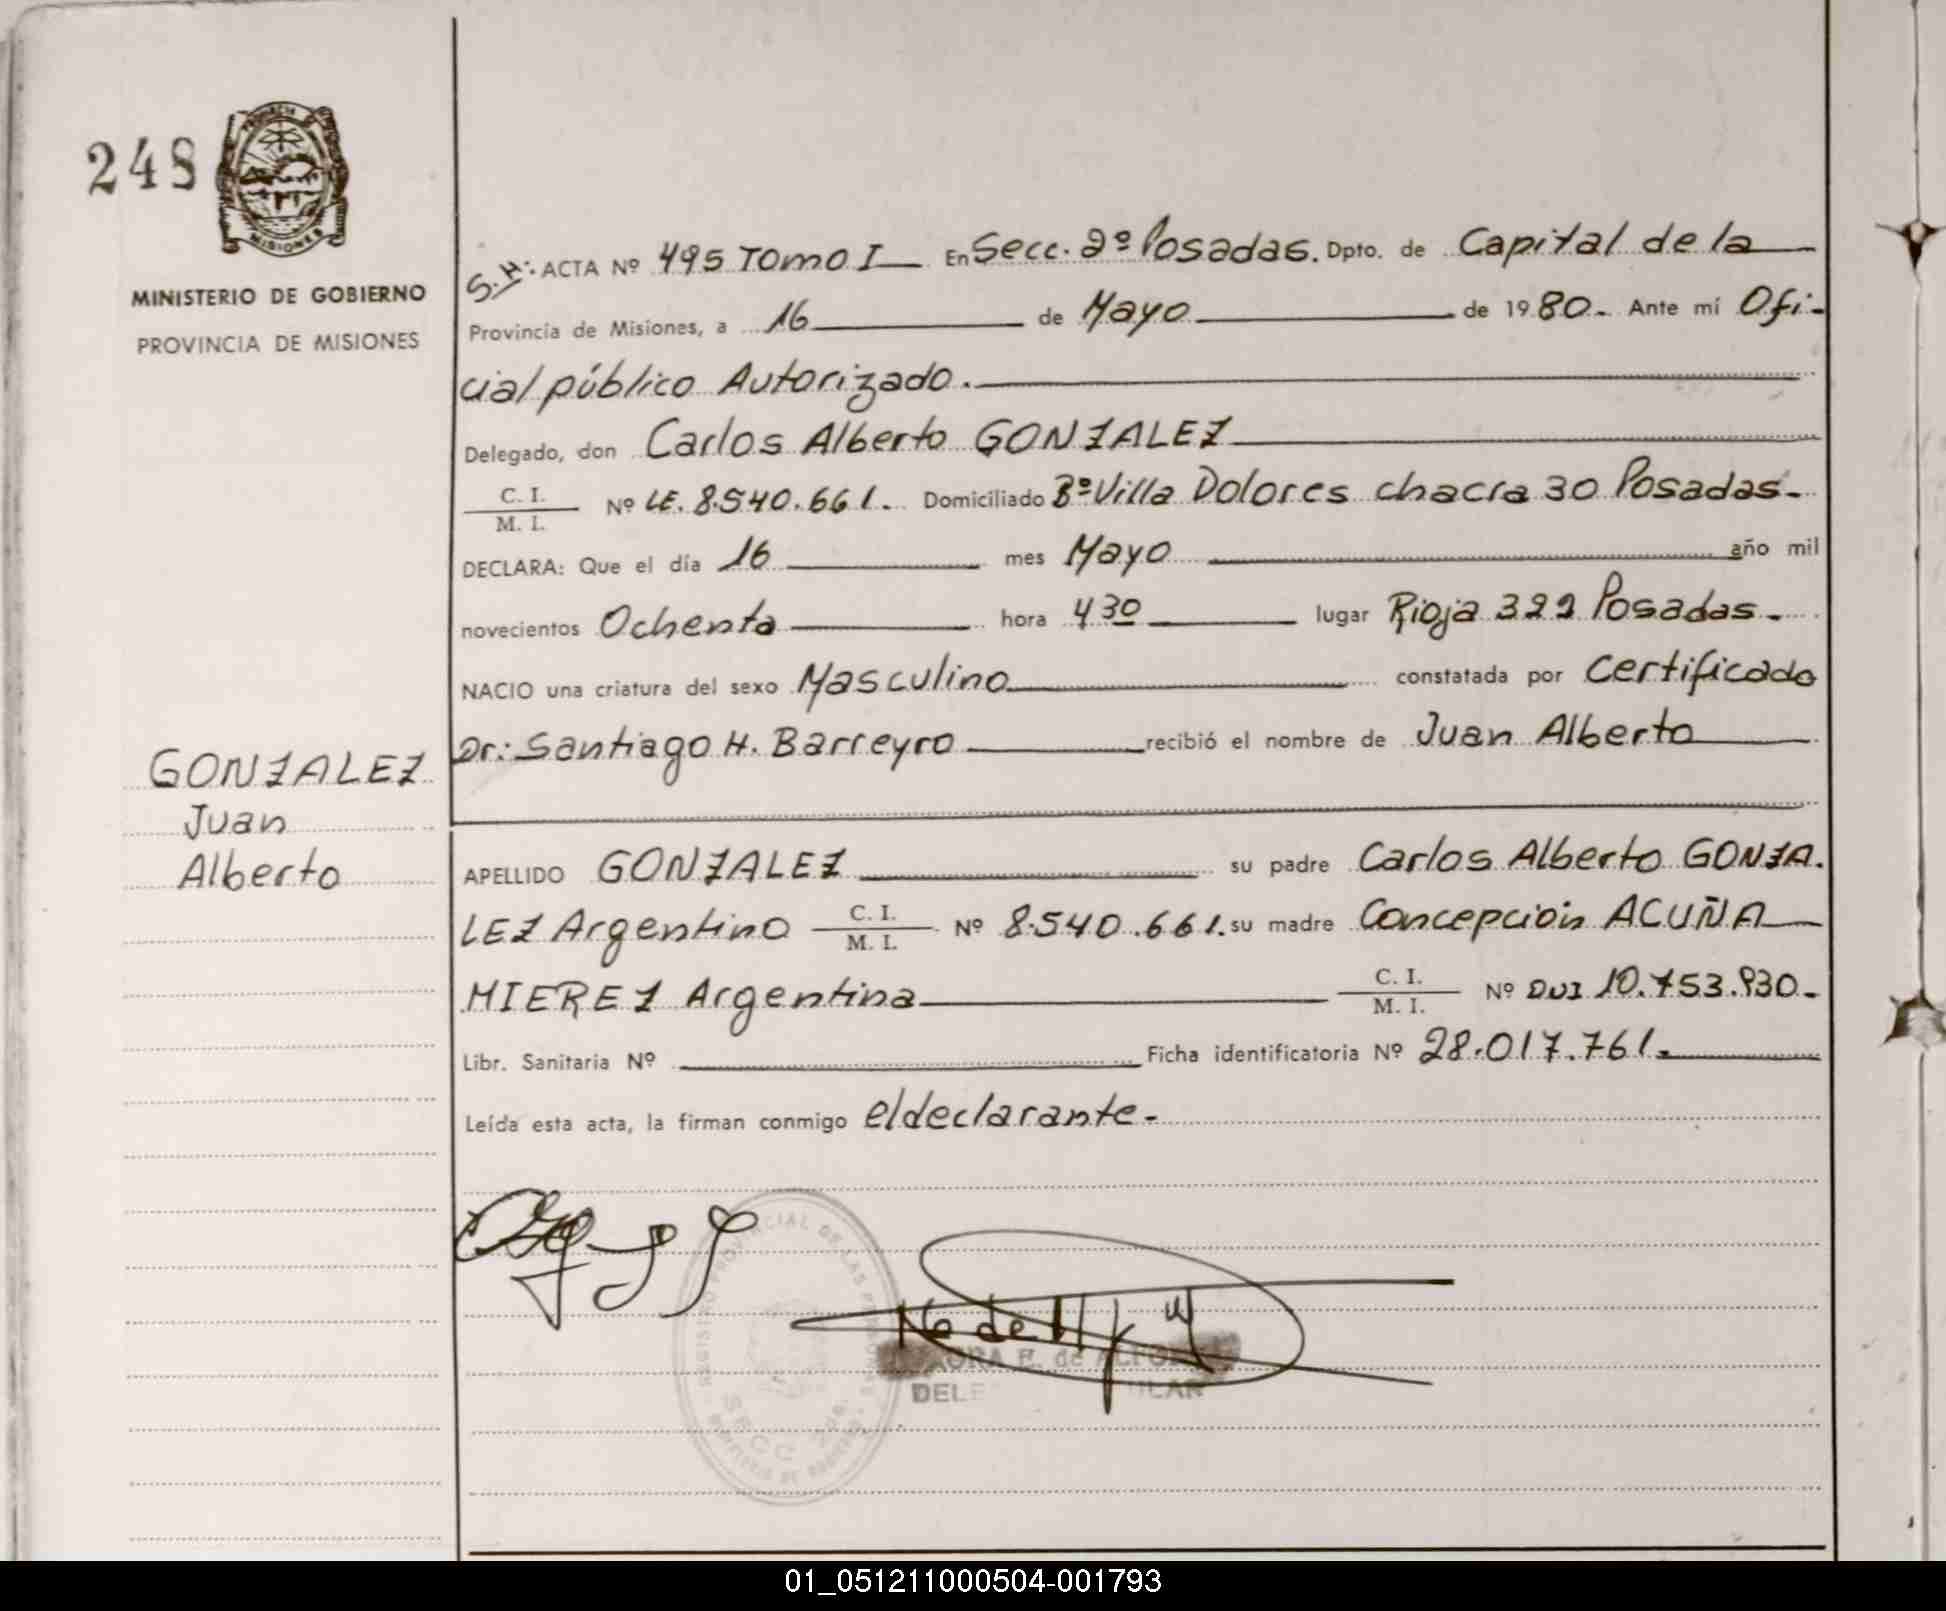 248
PROVINCIA DE
MISIONES
MINISTERIO DE GOBIERNO
PROVINCIA DE MISIONES
GONZALEZ
Juan
Alberto
S.H: ACTA Nº 495 TOMO I En Secc. 2º Posadas. Dpto. de Capital de la
Provincia de Misiones, a 16 de Mayo de 1980. Ante mí Ofi-
cial público Autorizado.
Delegado, don Carlos Alberto GONZALEZ
C. I.
M. I.
Nº LE. 8.540.661. Domiciliado Bº Villa Dolores chacra 30 Posadas-
DECLARA: Que el día 16 mes Mayo año mil
novecientos Ochenta hora 430 lugar Rioja 322 Posadas-
NACIO una criatura del sexo Masculino constatada por Certificado
Dr: Santiago H. Barreyro recibió el nombre de Juan Alberto
APELLIDO GONZALEZ su padre Carlos Alberto GONZA.
LEZ Argentino C. I. M. I. Nº 8.540.661. su madre Concepción ACUÑA
MIEREZ Argentina C. I. M. I. Nº DNI 10.753.930-
Libr. Sanitaria Nº Ficha identificatoria Nº 28.017.761.
Leída esta acta, la firman conmigo el declarante-
REGISTRO PROVINCIAL DE LAS PERSONAS
SECC.
E. de
01_051211000504-001793